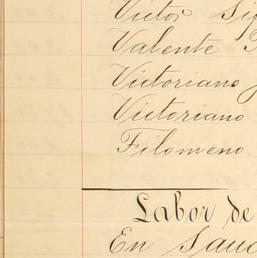 Victor
Valente
Victoriano
Victoriano
Filomeno
Labor de
En